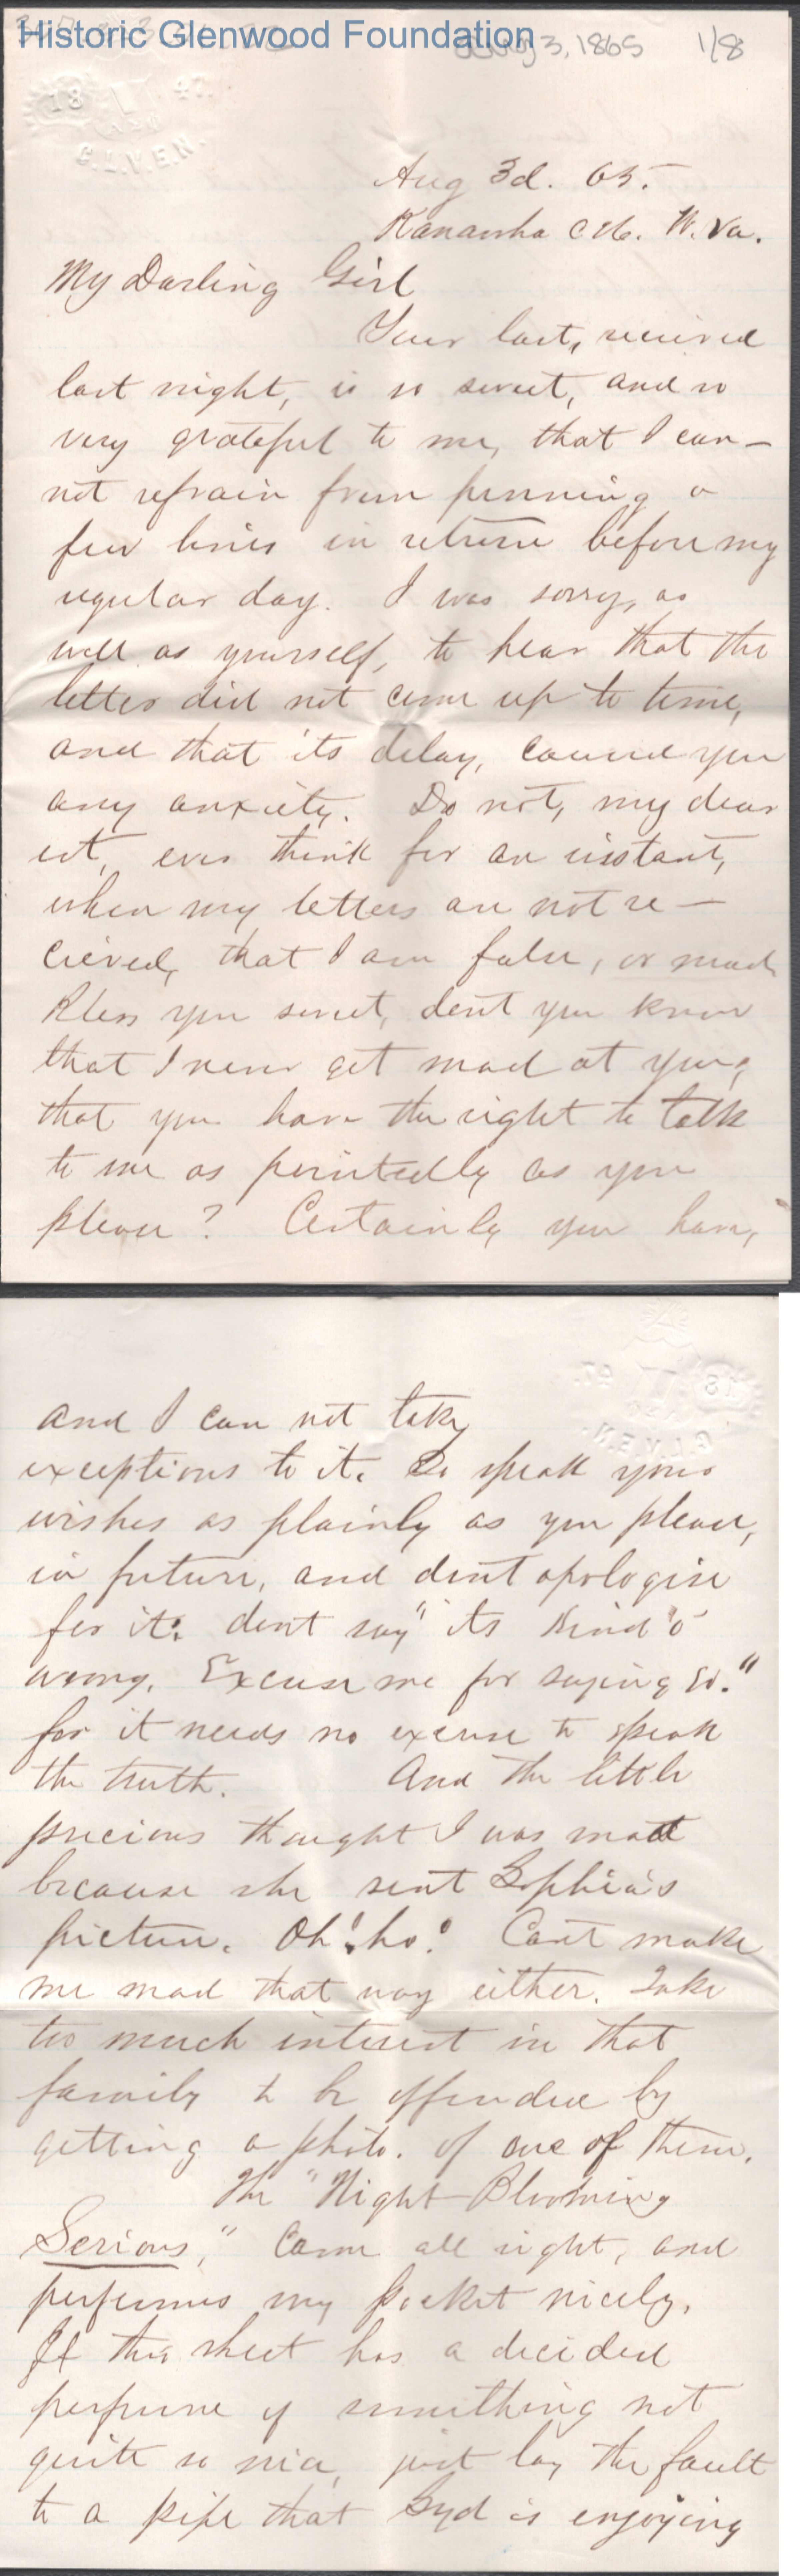 Historic Glenwood Foundation
Aug 3, 1865 1/8
G.L.V.E.N.
Aug 3d. 65.
Kanawha C.H. W. Va.
My Darling Girl
Your last, received
last night, is so sweet, and so
very grateful to me, that I can-
not refrain from penning a
few lines in return before my
regular day. I was sorry, as
well as yourself, to hear that the
letter did not come up to time,
and that its delay, caused you
any anxiety. Do not, my dear
est, ever think for an instant,
when my letters are not re-
cieved, that I am false, or mad
Bless you sweet, dont you know
that I never get mad at you,
that you have the right to talk
to me as pointedly as you
please? Certainly you have,
and I can not take
exceptions to it. So speak your
wishes as plainly as you please,
in future, and dont apologise
for it. dont say "its kind 'o
wrong. Excuse me for saying so."
for it needs no excuse to speak
the truth. And the little
precious thought I was mad
because she sent Sophia's
picture. Oh! ho! Cant make
me mad that way either. Take
too much interest in that
family to be offended by
getting a photo. of one of them.
The "Night Blooming
Serious," came all right, and
perfumes my pocket nicely.
If this sheet has a decided
perfume of something not
quite so nice, just lay the fault
to a pipe that Syd is enjoying